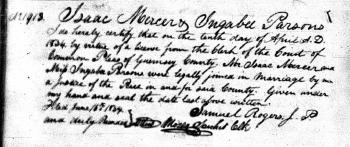 No 1913. Isaac Mercer & Ingabee Parsons
I do hereby certify that on the tenth day of April A.D
1834. by virtue of a leave from the Clerk of the Court of
Common Pleas of Guernsey County. Mr. Isaac Mercer and
Miss Ingabee Parsons were legally joined in Marriage by me
a Justice of the Peace in and for said County. Given under
my hand and seal the date last above written
Samuel Rogers, J. P
Filed June 16th 1834.
and duly Recorded Clk